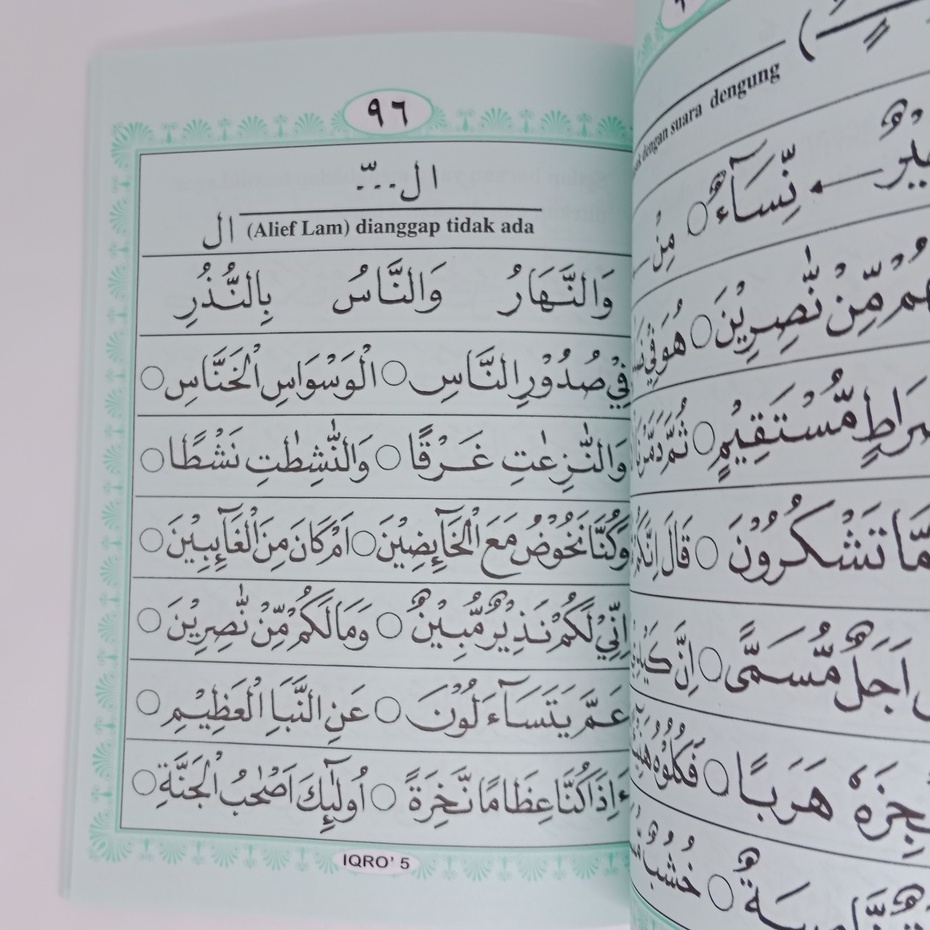 ٩٦
ال...ّ
ال (Alief Lam) dianggap tidak ada
وَالنَّهَارُ وَالنَّاسُ بِالنُّذُرِ
فِيْ صُدُوْرِ النَّاسِ ○ الْوَسْوَاسِ الْخَنَّاسِ ○
وَالنّٰزِعٰتِ غَرْقًا ○ وَالنّٰشِطٰتِ نَشْطًا ○
وَكُنَّا نَخُوْضُ مَعَ الْخَآئِضِيْنَ ○ اَمْ كَانَ مِنَ الْغَآئِبِيْنَ ○
اِنِّيْ لَكُمْ نَذِيْرٌ مُّبِيْنٌ ○ وَمَا لَكُمْ مِّنْ نّٰصِرِيْنَ ○
عَمَّ يَتَسَآءَلُوْنَ ○ عَنِ النَّبَاِ الْعَظِيْمِ ○
ءَاِذَا كُنَّا عِظَامًا نَّخِرَةً ○ اُولٰٓئِكَ اَصْحٰبُ الْجَنَّةِ ○
IQRO' 5
dengan suara dengung
نِّسَآءً ○ مِنْ
مِّنْ نّٰصِرِيْنَ ○ هُوَ فِيْ
مُّسْتَقِيْمٍ ○ ثُمَّ
تَشْكُرُوْنَ ○ قَالَ
اَجَلٌ مُّسَمًّى ○ اِنَّ
هَرَبًا ○ فَكُلُوْهُ
○ خُشُبٌ